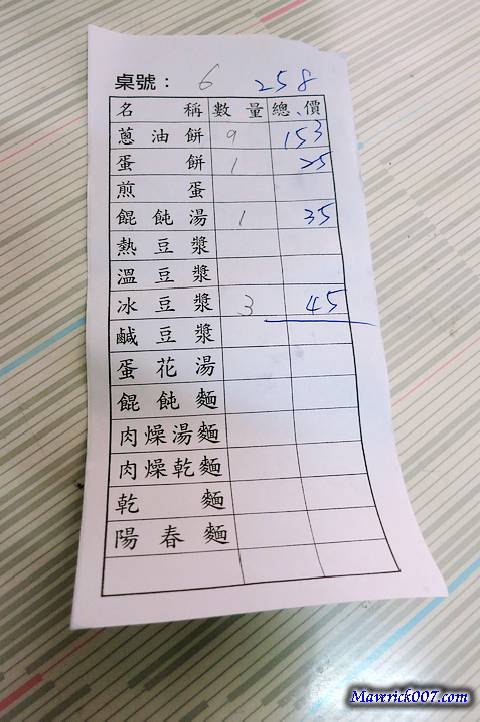 桌號： 6 258
名稱 數量 總、價
蔥油餅 9 153
蛋餅 1 25
煎蛋
餛飩湯 1 35
熱豆漿
溫豆漿
冰豆漿 3 45
鹹豆漿
蛋花湯
餛飩麵
肉燥湯麵
肉燥乾麵
乾麵
陽春麵
Maverick007.com